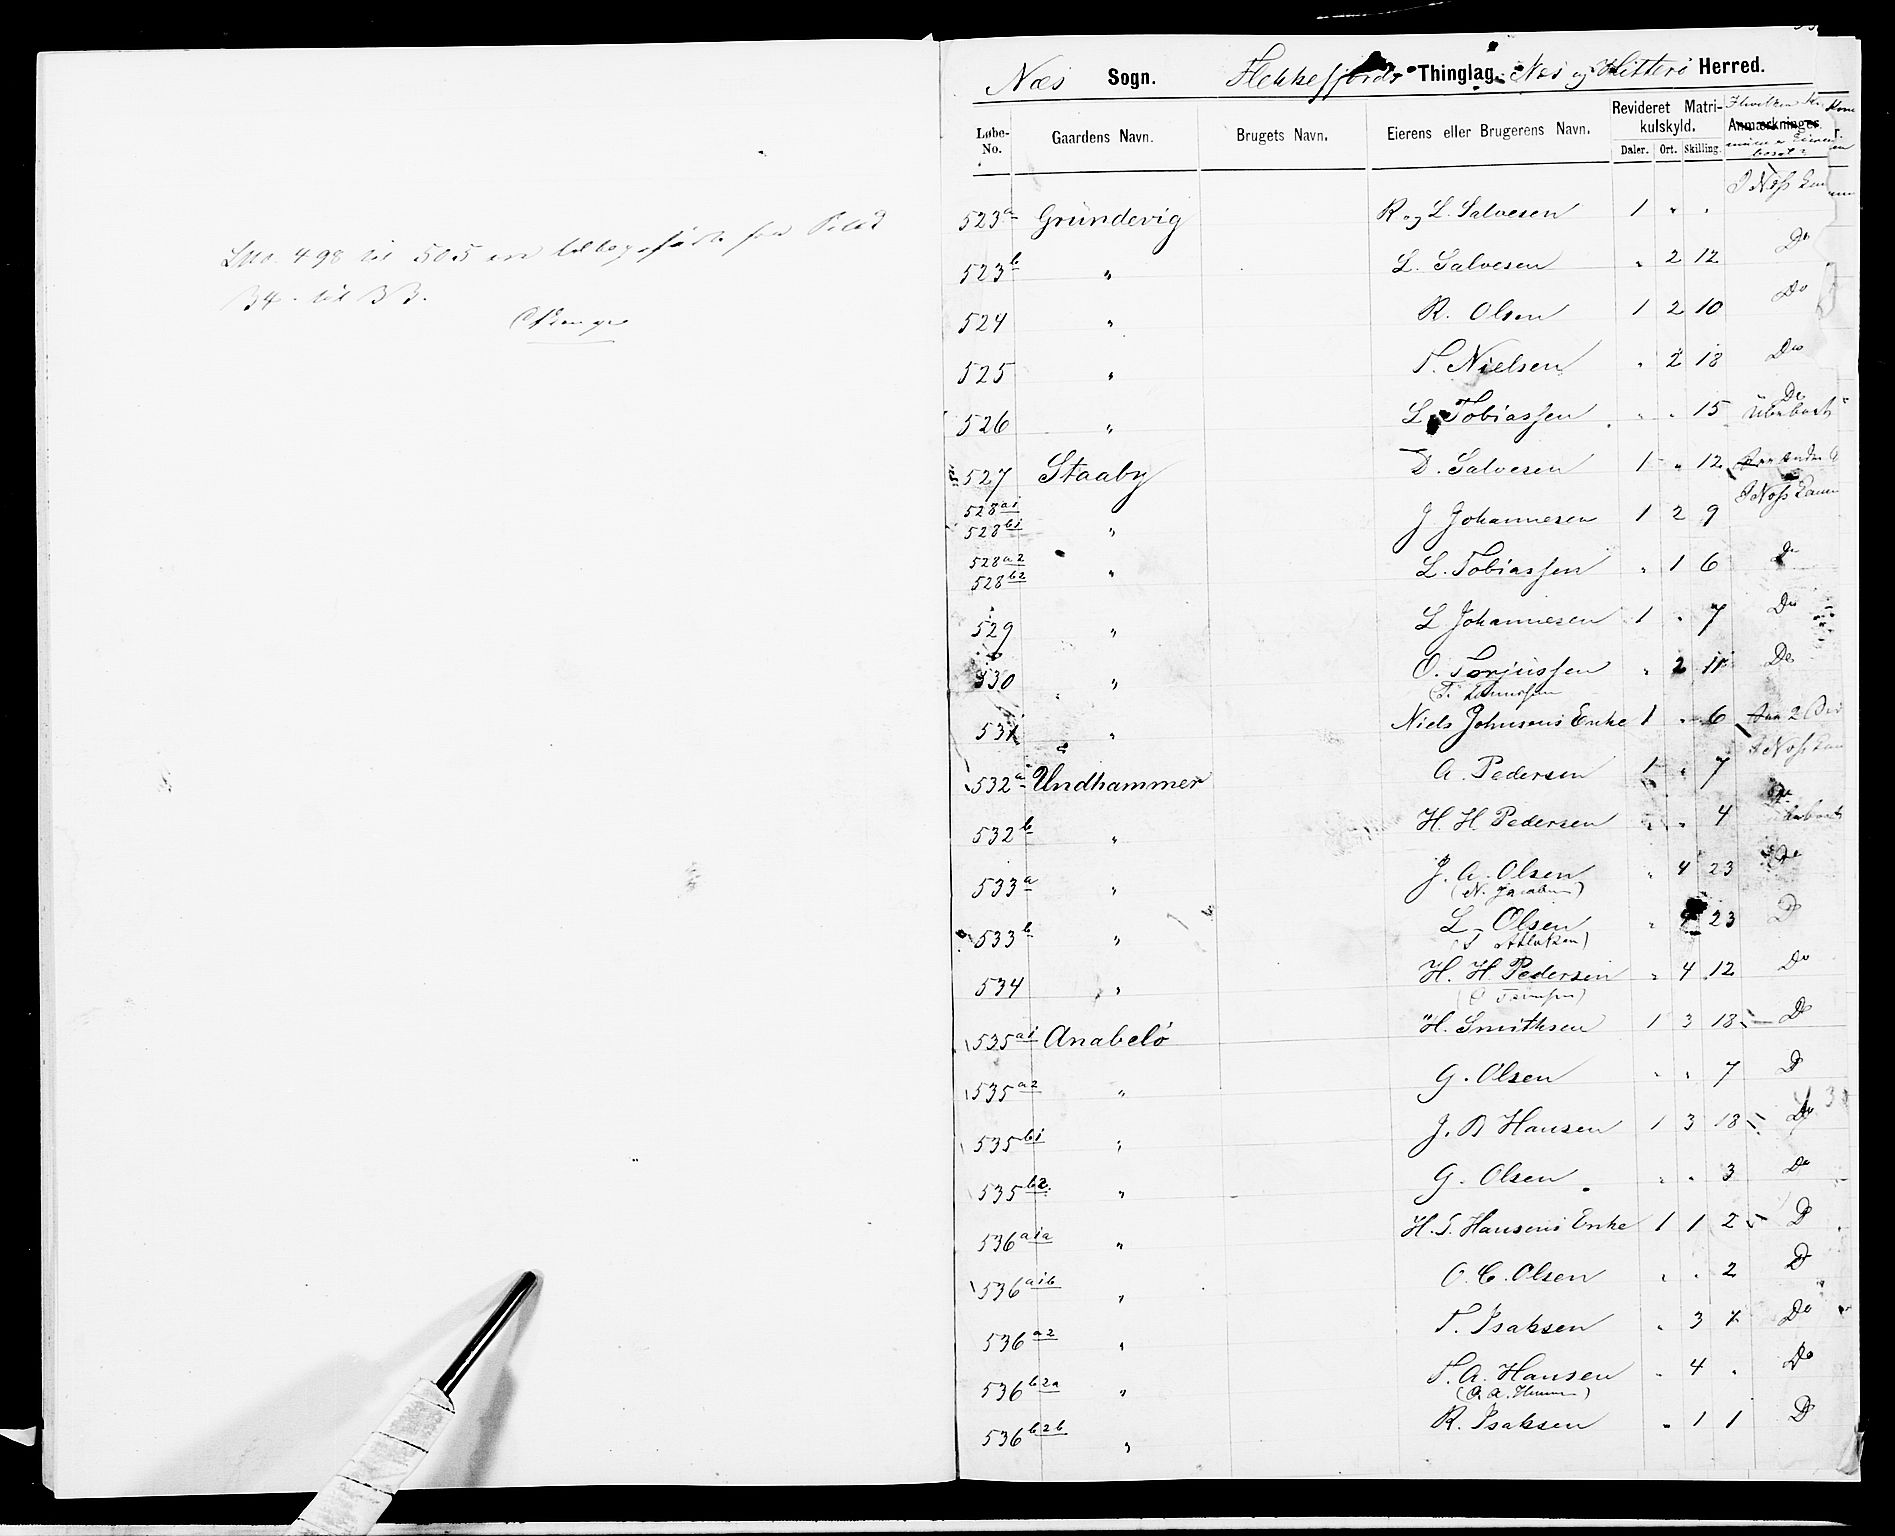 LNo. 498 til 505 er tilbageført fra
34 til 33.
Næs Sogn. Flekkefjords Thinglag. Næs og Hitterø Herred.
Løbe-No. Gaardens Navn. Brugets Navn. Eierens eller Brugerens Navn. Revideret Matrikulskyld. Anmærkninger.
Daler. Ort. Skilling.
523a Grundevig R og L. Salvesen 1 " " I Næs
523b " L. Salvesen " 2 12 Do
524 " R. Olsen 1 2 10 Do
525 " T. Nielsen " 2 18 Do
526 " L. Tobiassen " " 15 Do
527 Staaby D. Salvesen 1 " 12
528a1
528b1 " J Johannesen 1 2 9 I Næs
528a2
528b2 " L. Tobiassen " 1 6 Do
529 " L Johannesen 1 " 7 Do
530 " O. Torjussen " 2 11 Do
531 " Niels Johnsens Enke 1 " 6
532a Undhammer A. Pedersen 1 " 7 I Næs
532b " H. H. Pedersen " " 4
533a " J. A. Olsen " 4 23 Do
(N. Jacobsen)
533b " L. Olsen " 23 Do
534 " H. H. Pedersen " 4 12 Do
535a1 Anabelö H. Smithsen 1 3 18 Do
535a2 " G. Olsen " " 7 Do
535b1 " J. B Hansen 1 3 18 Do
535b2 " G. Olsen " " 3 Do
536a1a " H. T. Hansens Enke 1 1 2 Do
536a1b " O. C. Olsen " " 2 Do
536a2 " T. Isaksen " 3 Do
536b2a " T. A. Hansen " 4 " Do
536b2b " R. Isaksen " 1 1 Do